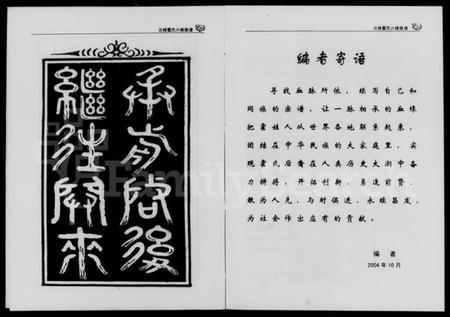 氏六修族谱
承前啓後
繼往開來
氏六修族谱
编者寄语
寻找血脉所依，续写自己和
同族的宗谱，让一脉相承的血缘
把姓人从世界各地联系起来，
团结在中华民族的大家庭里，实
现氏后裔在人类历史大潮中奋
力拼搏，开拓创新，勇追前贤，
敢为人先，与时俱进，永续昌发，
为社会作出应有的贡献。
编 者
2004 年 10 月
FamilySearch